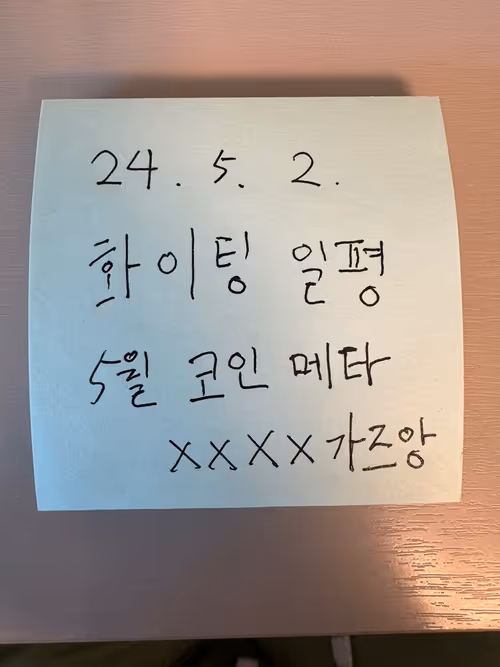 24. 5. 2.
화이팅 일평
5월 코인 메타
XXXX가즈앙